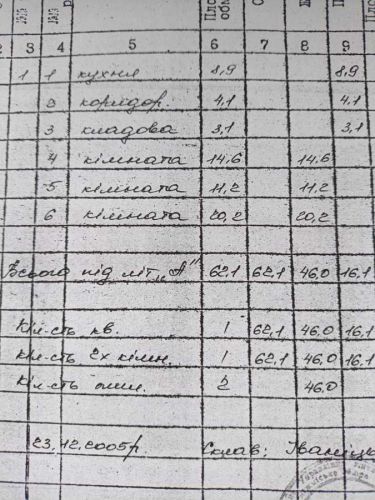 2 3 4 5 6 7 8 9
1 1 кухня 8,9 8,9
2 коридор. 4,1 4,1
3 кладова 3,1 3,1
4 кімната 14,6 14,6
5 кімната 11,2 11,2
6 кімната 20,2 20,2
Всього під літ. „А" 62,1 62,1 46,0 16,1
Кіл-сть кв. 1 62,1 46,0 16,1
Кіл-сть 2х кімн. 1 62,1 46,0 16,1
Кіл-сть 2 46,0
23.12.2005р. Склав: